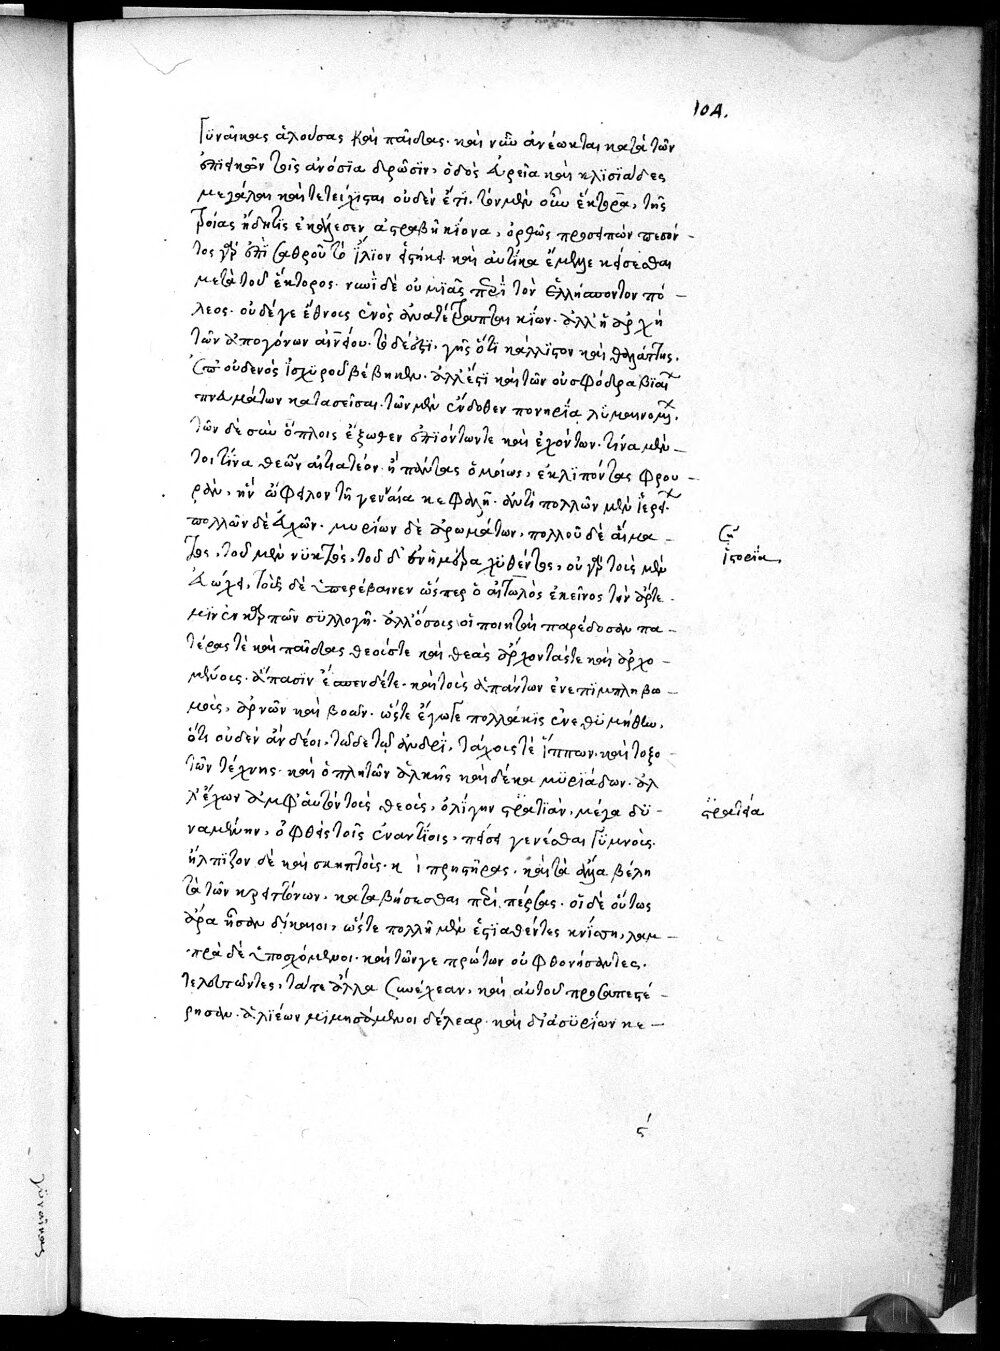 104.
γυναῖκας ἁλούσας καὶ παῖδας. καὶ νῦν ἀνέωκται κατὰ τῶν
ἐπιεικῶν τοῖς ἀνόσια δρῶσϊν, ὁδὸς εὐρεῖα καὶ κλϊσϊάδες
μεγάλαι καὶ τετείχϊσται οὐδὲν ἔτϊ. τὸν μὲν οὖν ἕκτορα, τῆς
τροίας ἤδη τϊς ἐκάλεσεν ἀστραβῆ κίονα, ὀρθῶς προσειπών πεσόν –
τος γὰρ ἐπὶ σαθροῦ τὸ ἴλϊον εἱστήκει καὶ αὐτίκα ἔμελλε κείσεσθαι
μετὰ τοῦ ἕκτορος. νυνῒ δὲ οὐ μϊᾶς περὶ τὸν ἑλλήσποντον πό –
λεος. οὐδέ γε ἔθνους ἑνὸς ἀνατέτραπται κίων. ἀλλ' ἡ ἀρχὴ
τῶν ἀπογόνων αἰνείου. τὸ δέ ἐστϊ, γῆς ὅτϊ κάλλϊστον καὶ θαλάττης.
ἐπ' οὐδενὸς ἰσχϋροῦ βέβηκεν. ἀλλ' ἔστϊ καὶ τῶν οὐ σφόδρα βϊαί
πνευμάτων κατασεῖσαι. τῶν μὲν ἔνδοθεν πονηρίᾳ λϋμαινομ
τῶν δὲ σὺν ὅπλοις ἔξωθεν ἐπϊόντων τε καὶ ἐχόντων. τίνα μέν –
τοι τίνα θεῶν αἰτιατέον. ἢ πάντας ὁμοίως, ἐκλϊπόντας φρου –
ρὰν, ἣν ὤφειλον τῇ γενναίᾳ κεφαλῇ. ἀντὶ πολλῶν μὲν ἱερεί
πολλῶν δὲ εὐχῶν. μυρίων δὲ ἀρωμάτων, πολλοῦ δὲ αἵμα –
τος, τοῦ μὲν νϋκτὸς, τοῦ δ' ἐν ἡμέρᾳ χϋθέντος, οὐ γὰρ τοὺς μὲν
εὐώχει, τοὺς δὲ ὑπερέβαινεν ὥσπερ ὁ αἰτωλὸς ἐκεῖνος τὴν ἄρτε –
μϊν ἐν καρπῶν σϋλλογῇ. ἀλλ' ὅσοις οἱ ποιηταὶ παρέδοσαν πα –
τέρας τὲ καὶ παῖδας θεούς τε καὶ θεὰς ἄρχοντάς τε καὶ ἀρχο –
μένους. ἅπασϊν ἔσπενδέ τε. καὶ τοὺς ἁπάντων ἐνεπϊμπλη βω –
μοὺς, ἀρνῶν καὶ βοῶν. ὥστε ἔγωγε πολλάκϊς ἐνεθϋμήθην,
ὅτϊ οὐδὲν ἂν δέοι, τῷδε τῷ ἀνδρϊ, τάχους τὲ ἵππων. καὶ τοξο –
τῶν τέχνης. καὶ ὁπλητῶν ἀλκῆς καὶ δέκα μϋρϊάδων. ἀλ
λ' ἔχων ἀμφ' αὑτὸν τοὺς θεοὺς, ὀλίγην στρατϊὰν, μέγα δϋ –
ναμένην, ὀφθεὶς τοῖς ἐναντίοις, πείσει γενέσθαι γϋμνοὺς.
ἤλπϊζον δὲ καὶ σκηπτοὺς. κ ὶ πρηστῆρας. καὶ τὰ ἄλλα βέλη
τὰ τῶν κρειττόνων, καταβήσεσθαι περὶ πέρσας. οἱ δὲ οὕτως
ἄρα ἦσαν δίκαιοι, ὥστε πολλῇ μὲν ἑστιαθέντες κνίσσῃ, λαμ –
πρὰ δὲ ὑποσχόμενοι. καὶ τῶν γε πρώτων οὐ φθονήσαντες.
τελευτῶντες, τά τε ἄλλα συνέχεαν, καὶ αὐτοῦ προσαπεστέ –
ρησαν. ἁλϊέων μϊμησάμενοι δέλεαρ. καὶ δϊ' ἀσϋρίων κε –
ση
ἱστορία
στρατεία
ς´
γϋναῖκας